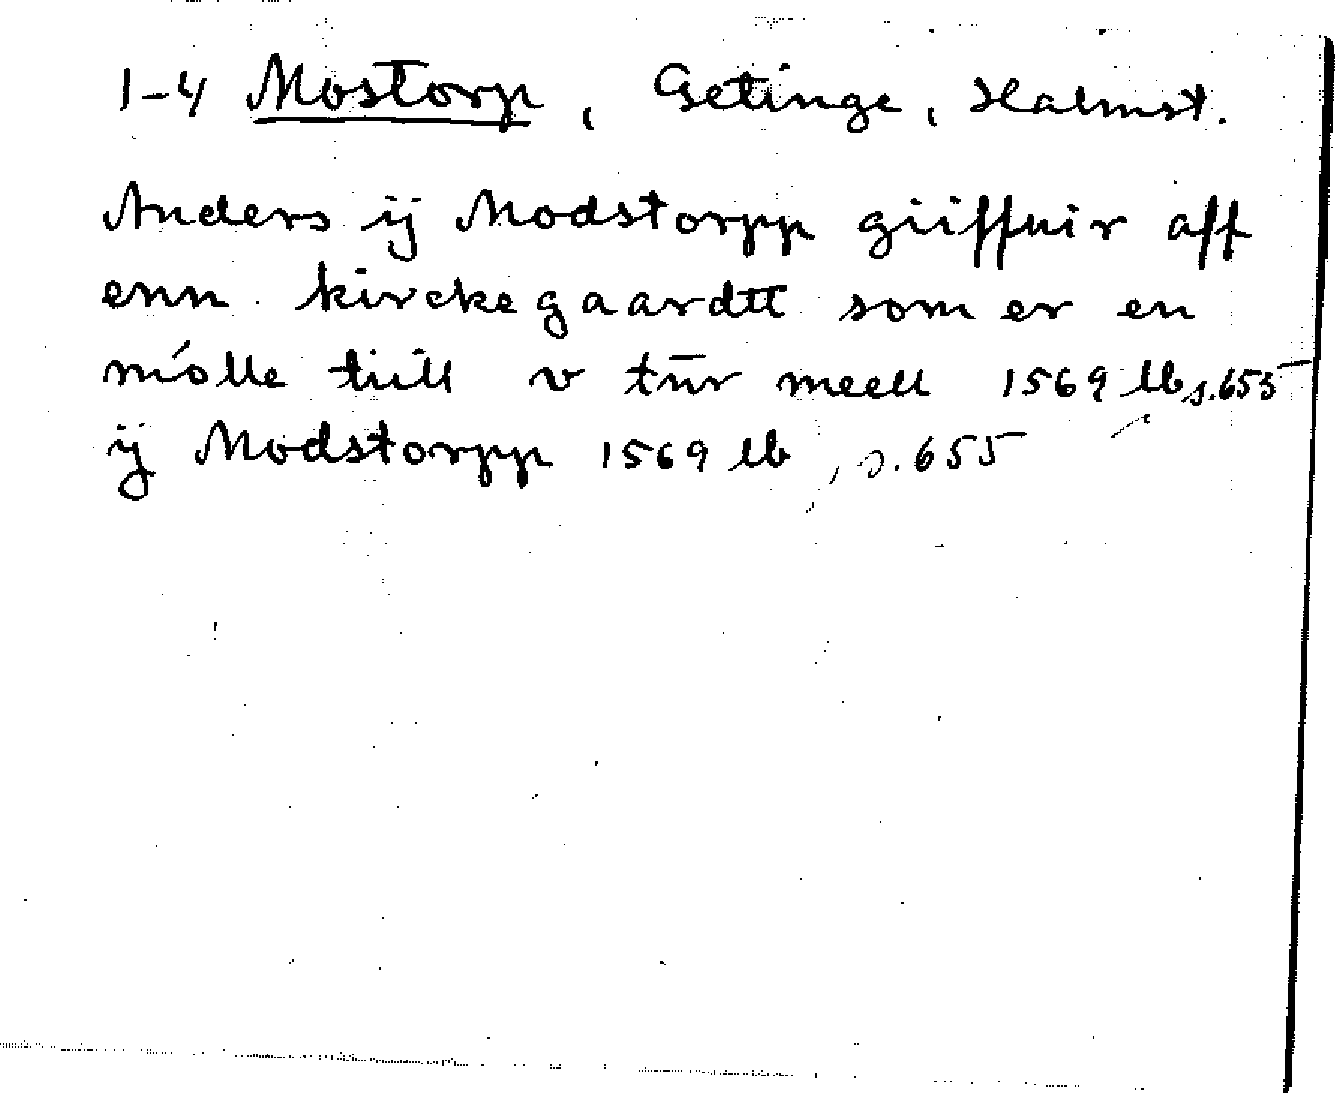 1-4 Mostorp, Getinge, Halmst.
Anders ij Modstorpp giiffuir aff
enn kirckegaardtt som er en
mólle tiill v tūr meell 1569 lb s.655
ij Modstorpp 1569 lb, s.655